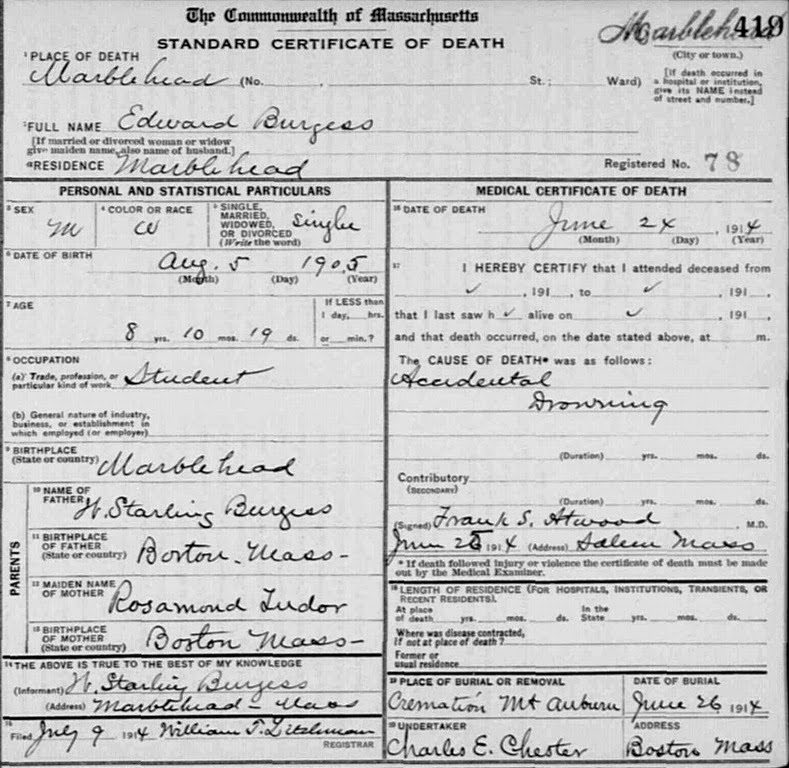 The Commonwealth of Massachusetts
Marblehead 419
STANDARD CERTIFICATE OF DEATH
(City or town.)
1 PLACE OF DEATH
Marblehead (No. , St.; Ward)
[If death occurred in a hospital or institution, give its NAME instead of street and number.]
2 FULL NAME Edward Burgess
[If married or divorced woman or widow give maiden name, also name of husband.]
RESIDENCE Marblehead
Registered No. 78
PERSONAL AND STATISTICAL PARTICULARS
3 SEX M
4 COLOR OR RACE W
5 SINGLE, MARRIED, WIDOWED, OR DIVORCED (Write the word) Single
6 DATE OF BIRTH Aug. 5 1905
(Month) (Day) (Year)
7 AGE
If LESS than 1 day, hrs. or min.?
8 yrs. 10 mos. 19 ds.
8 OCCUPATION
(a) Trade, profession, or particular kind of work Student
(b) General nature of industry, business, or establishment in which employed (or employer)
9 BIRTHPLACE (State or country) Marblehead
PARENTS
10 NAME OF FATHER W. Starling Burgess
11 BIRTHPLACE OF FATHER (State or country) Boston Mass-
12 MAIDEN NAME OF MOTHER Rosamond Tudor
13 BIRTHPLACE OF MOTHER (State or country) Boston Mass-
14 THE ABOVE IS TRUE TO THE BEST OF MY KNOWLEDGE
(Informant) W. Starling Burgess
(Address) Marblehead - Mass
15 Filed July 9 1914 William T.
REGISTRAR
MEDICAL CERTIFICATE OF DEATH
16 DATE OF DEATH June 24, 1914
(Month) (Day) (Year)
17 I HEREBY CERTIFY that I attended deceased from
✓, 191 , to ✓, 191 ,
that I last saw h ✓ alive on ✓, 191 ,
and that death occurred, on the date stated above, at m.
The CAUSE OF DEATH* was as follows:
Accidental
Drowning
(Duration) yrs. mos. ds.
Contributory
(SECONDARY)
(Duration) yrs. mos. ds.
(Signed) Frank S. Atwood M.D.
June 1914 (Address) Salem Mass
* If death followed injury or violence the certificate of death must be made out by the Medical Examiner.
18 LENGTH OF RESIDENCE (FOR HOSPITALS, INSTITUTIONS, TRANSIENTS, OR RECENT RESIDENTS).
At place of death yrs. mos. ds. In the State yrs. mos. ds.
Where was disease contracted, if not at place of death?
Former or usual residence
19 PLACE OF BURIAL OR REMOVAL
Cremation Mt Auburn
DATE OF BURIAL
June 26, 1914
20 UNDERTAKER
Charles E. Chester
ADDRESS
Boston Mass